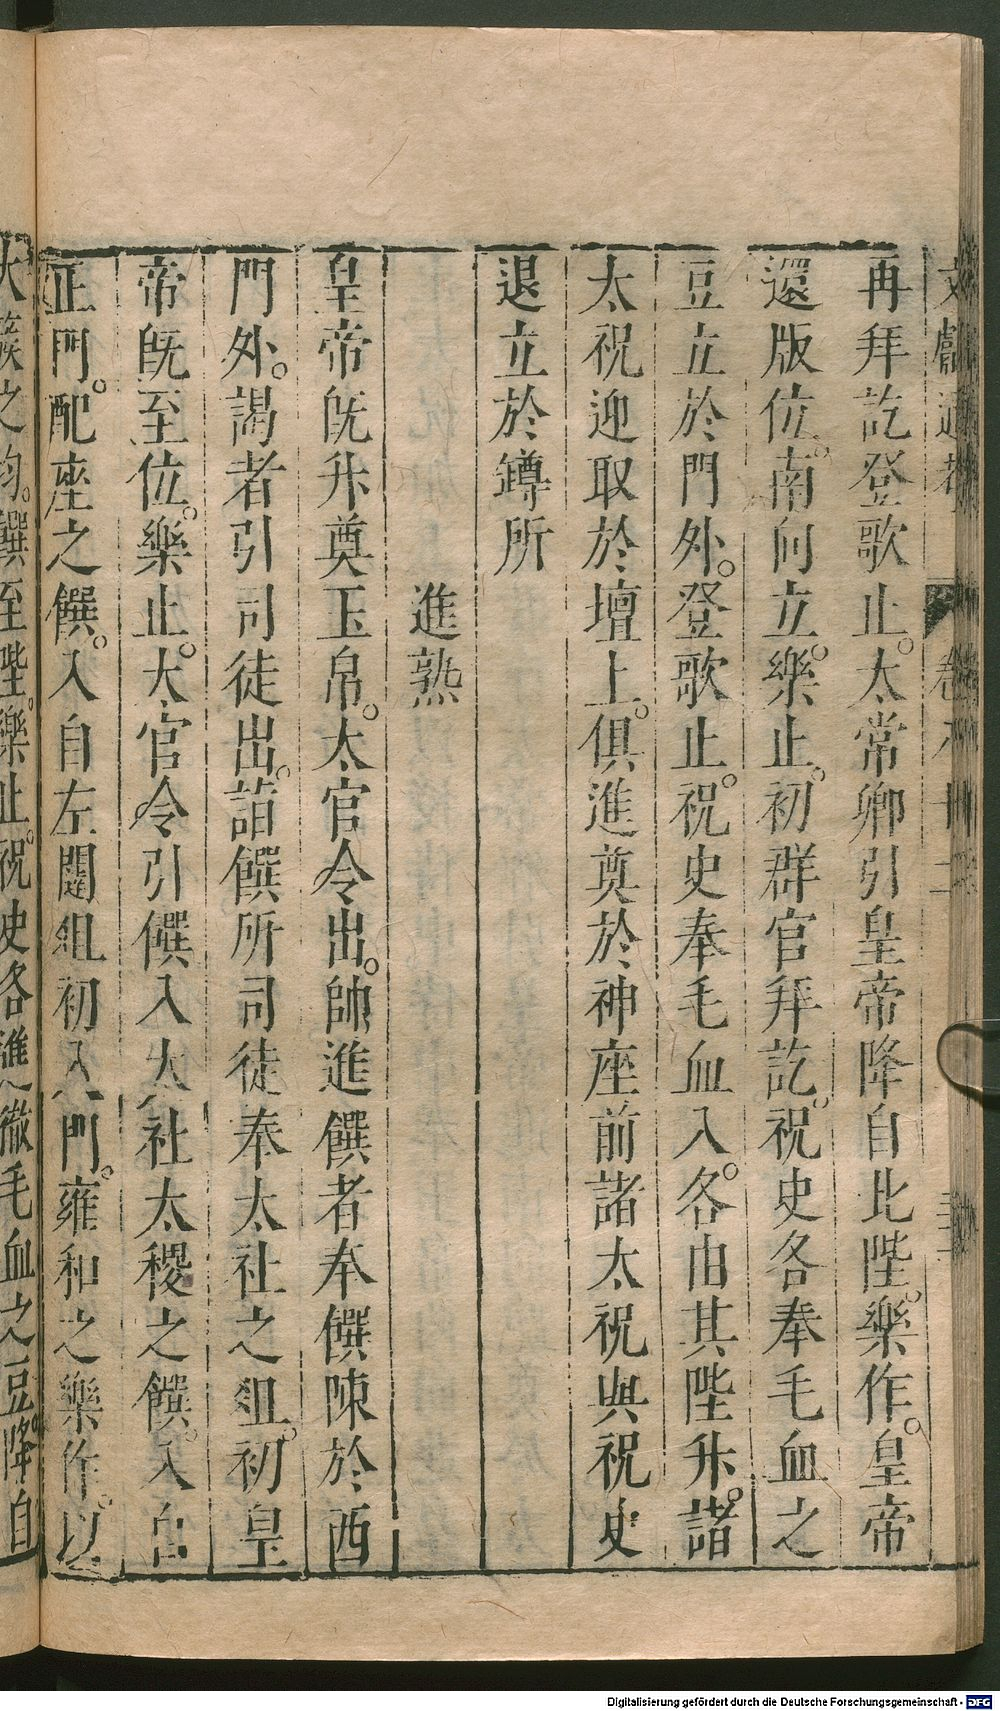 文獻通考 卷八十二
再拜訖登歌止太常卿引皇帝降自北陛樂作皇帝
還版位南向立樂止初群官拜訖祝史各奉毛血之
豆立於門外登歌止祝史奉毛血入各由其陛升諸
太祝迎取於壇上俱進奠於神座前諸太祝與祝史
退立於罇所
進熟
皇帝旣升奠玉帛太官令出帥進饌者奉饌陳於西
門外謁者引司徒出詣饌所司徒奉太社之俎初皇
帝旣至位樂止太官令引饌入太社太稷之饌入自
正門配座之饌入自左闥俎初入門雍和之樂作以
太簇之均饌至陛樂止祝史各進徹毛血之豆降自
Digitalisierung gefördert durch die Deutsche Forschungsgemeinschaft - DFG